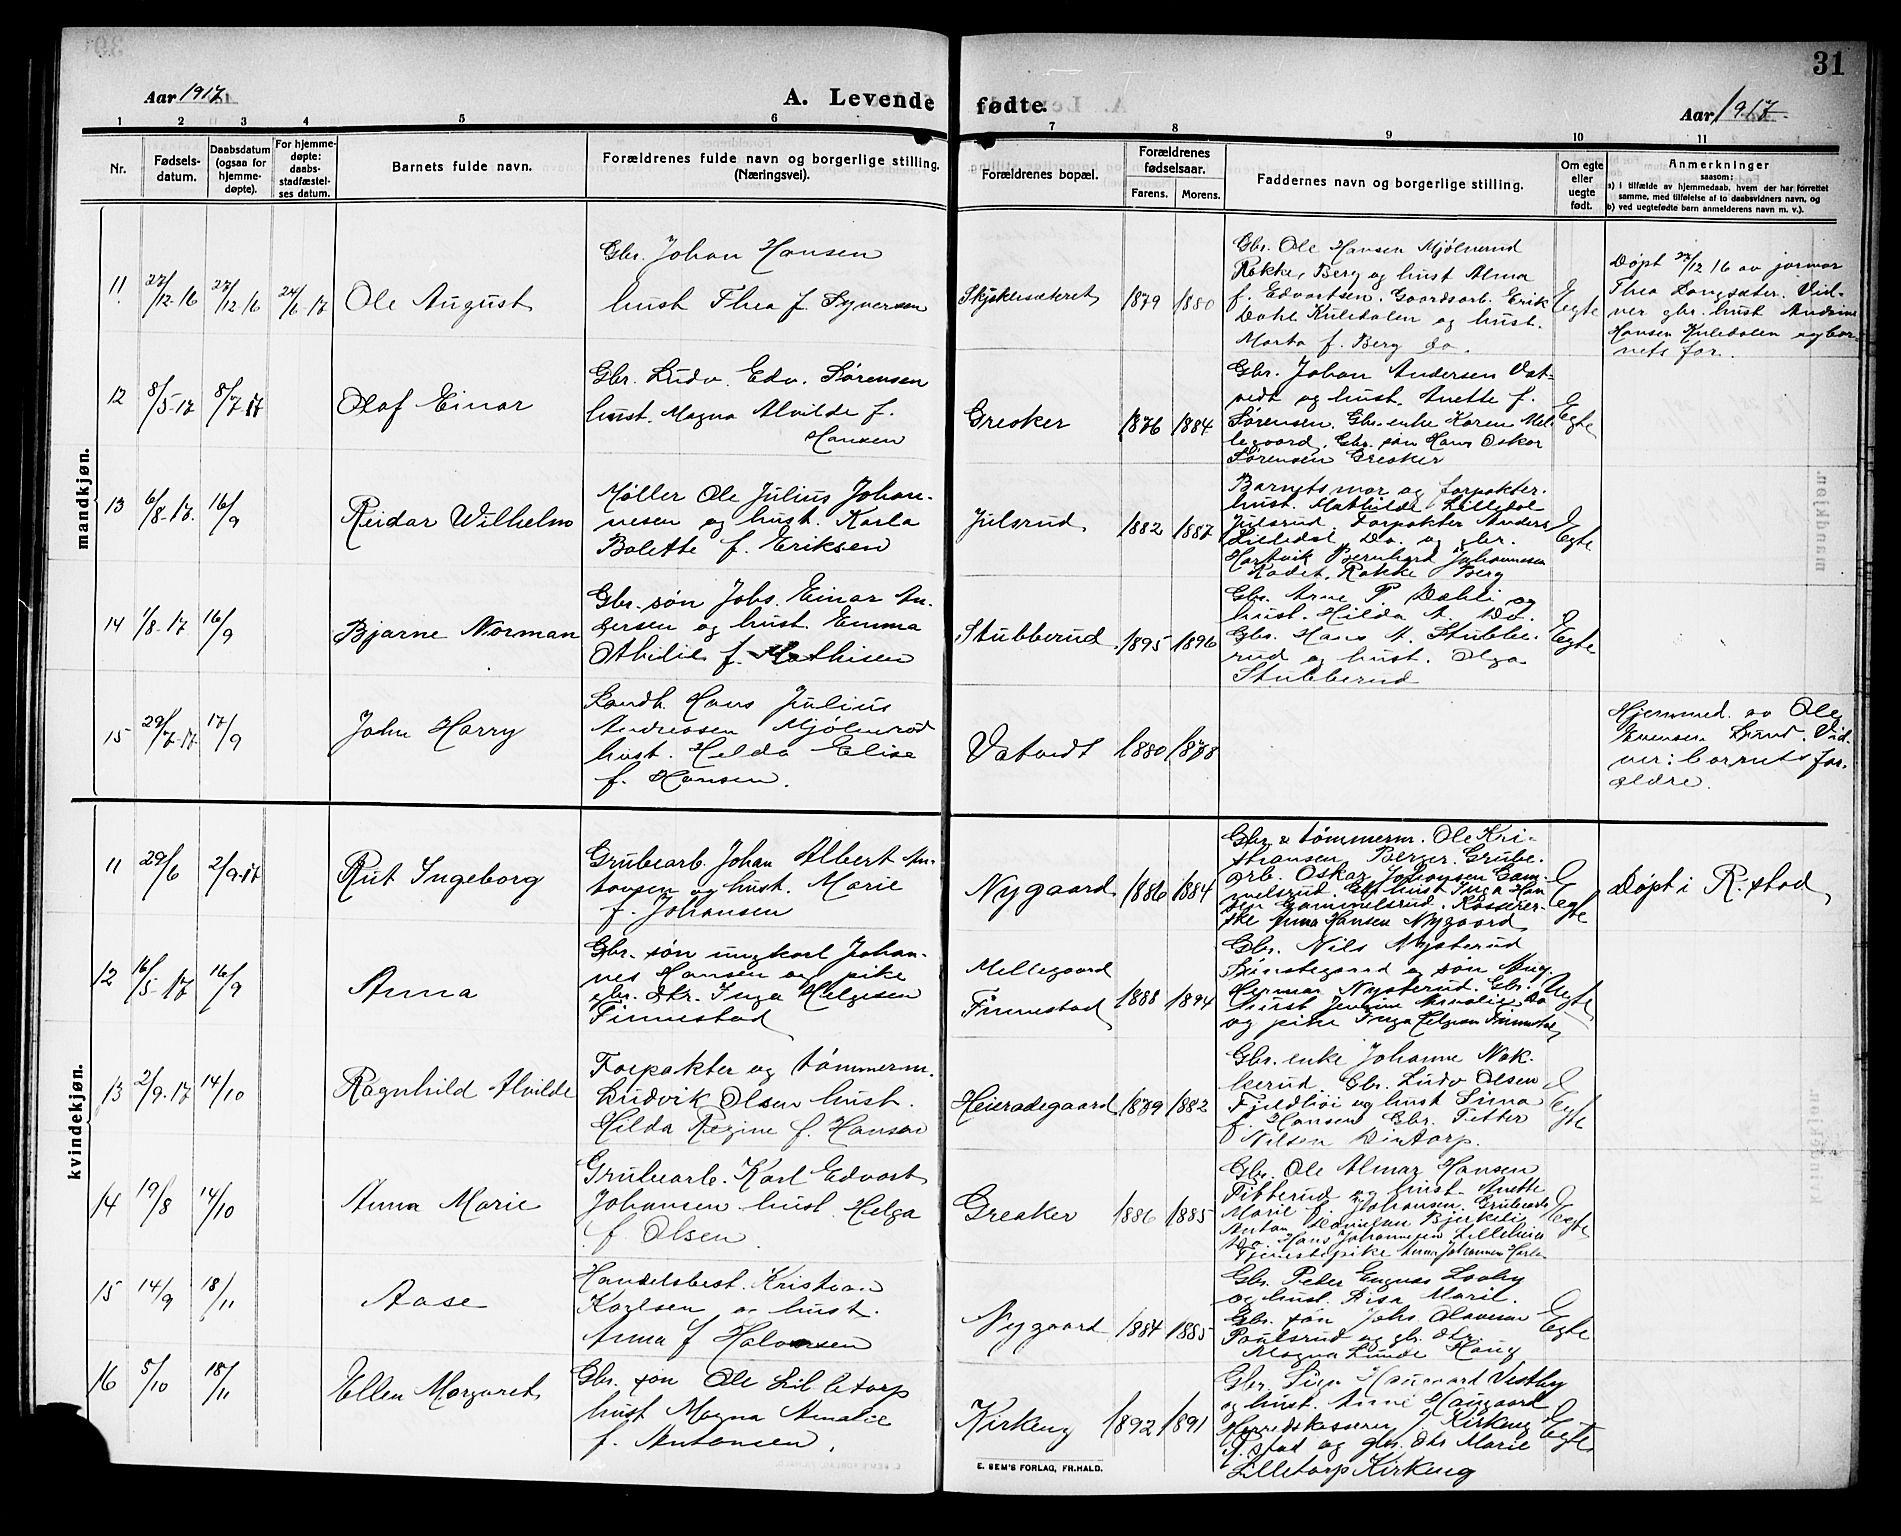 31
Aar 1917
A. Levende fødte.
Aar 1917
1 2 3 4 5 6 7 8 9 10 11
Nr.
Fødsels-
datum.
Daabsdatum
(ogsaa for
hjemme-
døpte).
For hjemme-
døpte:
daabs-
stadfæstel-
ses datum.
Barnets fulde navn.
Forældrenes fulde navn og borgerlige stilling.
(Næringsvei).
Forældrenes bopæl.
Forældrenes
fødselsaar.
Farens. Morens.
Faddernes navn og borgerlige stilling.
Om egte
eller
uegte
født.
Anmerkninger
saasom:
a) i tilfælde av hjemmedaab, hvem der har forrettet
samme, med tilføielse af to daabsvidners navn, og
b) ved uegtefødte barn anmelderens navn m. v.).
mandkjøn.
11
27/12-16
27/12-16
24/6-17
Ole August
Gbr. Johan Hansen
hust Thea f. Syversen
1879 1880
Gbr. Ole Hansen Mjølnerud
Rakke, Berg og hust Alma
f. Edvartsen. Gaardsarb. Erik
Dahl Kuledalen og hust.
Marta f. Berg do.
Egte
Døpt 27/12 16 av jormor
Thea Langsæter. Vid-
ner gbr. hust Andrine
Hansen Kuledalen og bar-
nets far.
12
8/5-17
8/7-17
Olaf Einar
Gbr. Ludv. Edv. Sørensen
hust. Magna Alvilde f.
Hansen
Greaker
1876 1884
Gbr. Johan Andersen Vat-
vedt og hust. Anette f.
Sørensen. Gbr. enke Karen Mel-
legaard, Gbr. søn Hans Oskar
Sørensen Greaker
Egte
13
6/8-17.
16/9
Reidar Wilhelm
Møller Ole Julius Johan-
nesen og hust. Karla
Bolette f. Eriksen
Julsrud
1882 1887
Barnets mor og forpakter.
hust. Mathilde Lilledal
Julsrud. Forpakter Anders
Lilledal, Do. og gbr.
Hartvik Bernhard Johannesen
Rakke Berg
Egte
14
1/8-17
16/9
Bjarne Norman
Gbr. søn Johs. Einar An-
dersen og hust. Emma
Othilie f. Mathisen
Stubberud
1895 1896
Gbr. Arne P Dæhli og
hust. Hilda A. Do.
Gbr. Hans A. Stubbe-
rud og hust. Olga
Stubberud
Egte
15
29/7-17
17/9
John Harry
Landh. Hans Julius
Andreasen Mjølnerød
hust. Helda Elise
f. Hansen.
Vatvedt
1880 1878
Hjemmed. av Ole
Evensen Lund. Vid-
ner: barnets for-
ældre.
kvindekjøn.
11
29/6
2/9-17
Rut Ingeborg
Grubearb. Johan Albert An-
tonsen og hust. Marie
f. Johansen
Nygaard
1886 1884
Gbr & tømmerm. Ole Kri-
stiansen Berger. Grube-
arb. Oskar Johansen Gam-
melsrud. Gbr hust Inga Han-
sen Gammelsrud. Kasserer-
ske Anna Hansen Nygaard
Egte
Døpt i R.stad
12
16/5-17
16/9
Anna
Gbr. søn ungkarl Johan-
nes Hansen og pike
gbr. dtr. Inga Helgesen
Finnestad
Mellegaard
Finnestad
1888 1894
Gbr. Nils Nysterud
og søn Ung.
Herman Nysterud. Gbr.
hust Do
og pike Inga Helgesen Finnestad
Uegte
13
2/9-17
14/10
Ragnhild Alvilde
Forpakter og tømmerm.
Ludvik Olsen hust.
Hilda Regine f. Hansen
Heieradegaard
1879 1882
Gbr. enke Johanne Nak-
kerud. Gbr. Ludv Olsen
og hust Sina
f. Hansen Gbr.
Nilsen Lintorp.
Egte
14
19/8
14/10
Anna Marie
Grubearb. Karl Edvart
Johansen hust. Helga
f. Olsen
Greaker
1886 1885
Gbr. Ole Almar Hansen
Titterud og hust. Anette
Marie f. Johansen. Grubearb.
Anton Danielsen Bjerkeli
Do. Hans Johannesen Lillehus
Tjenestepike Anna Johannesen
Egte
15
14/9
18/11
Aase
Handelsbest. Kristian
Karlsen og hust.
Anna f Halvorsen
Nygaard
1884 1885
Gbr. Peder Engnæs Løoby
og hust. Lisa Marie.
Gbr. søn Johs Olavesen
Poulsrud og gbr. dtr.
Magna Lunde Haug
Egte
16
5/10
18/11
Ellen Margaret
Gbr. søn Ole Lilletorp
hust Magna Amalie
f. Antonsen.
Kirkeng
1892 1891
Gbr. Haugaard Vestby
og hust. Anne Haugaard
Herredskasserer J. Kirkeng
R.stad og gbr. dtr Marie
Lilletorp Kirkeng
Egte
E. SEM'S FORLAG, FR.HALD.